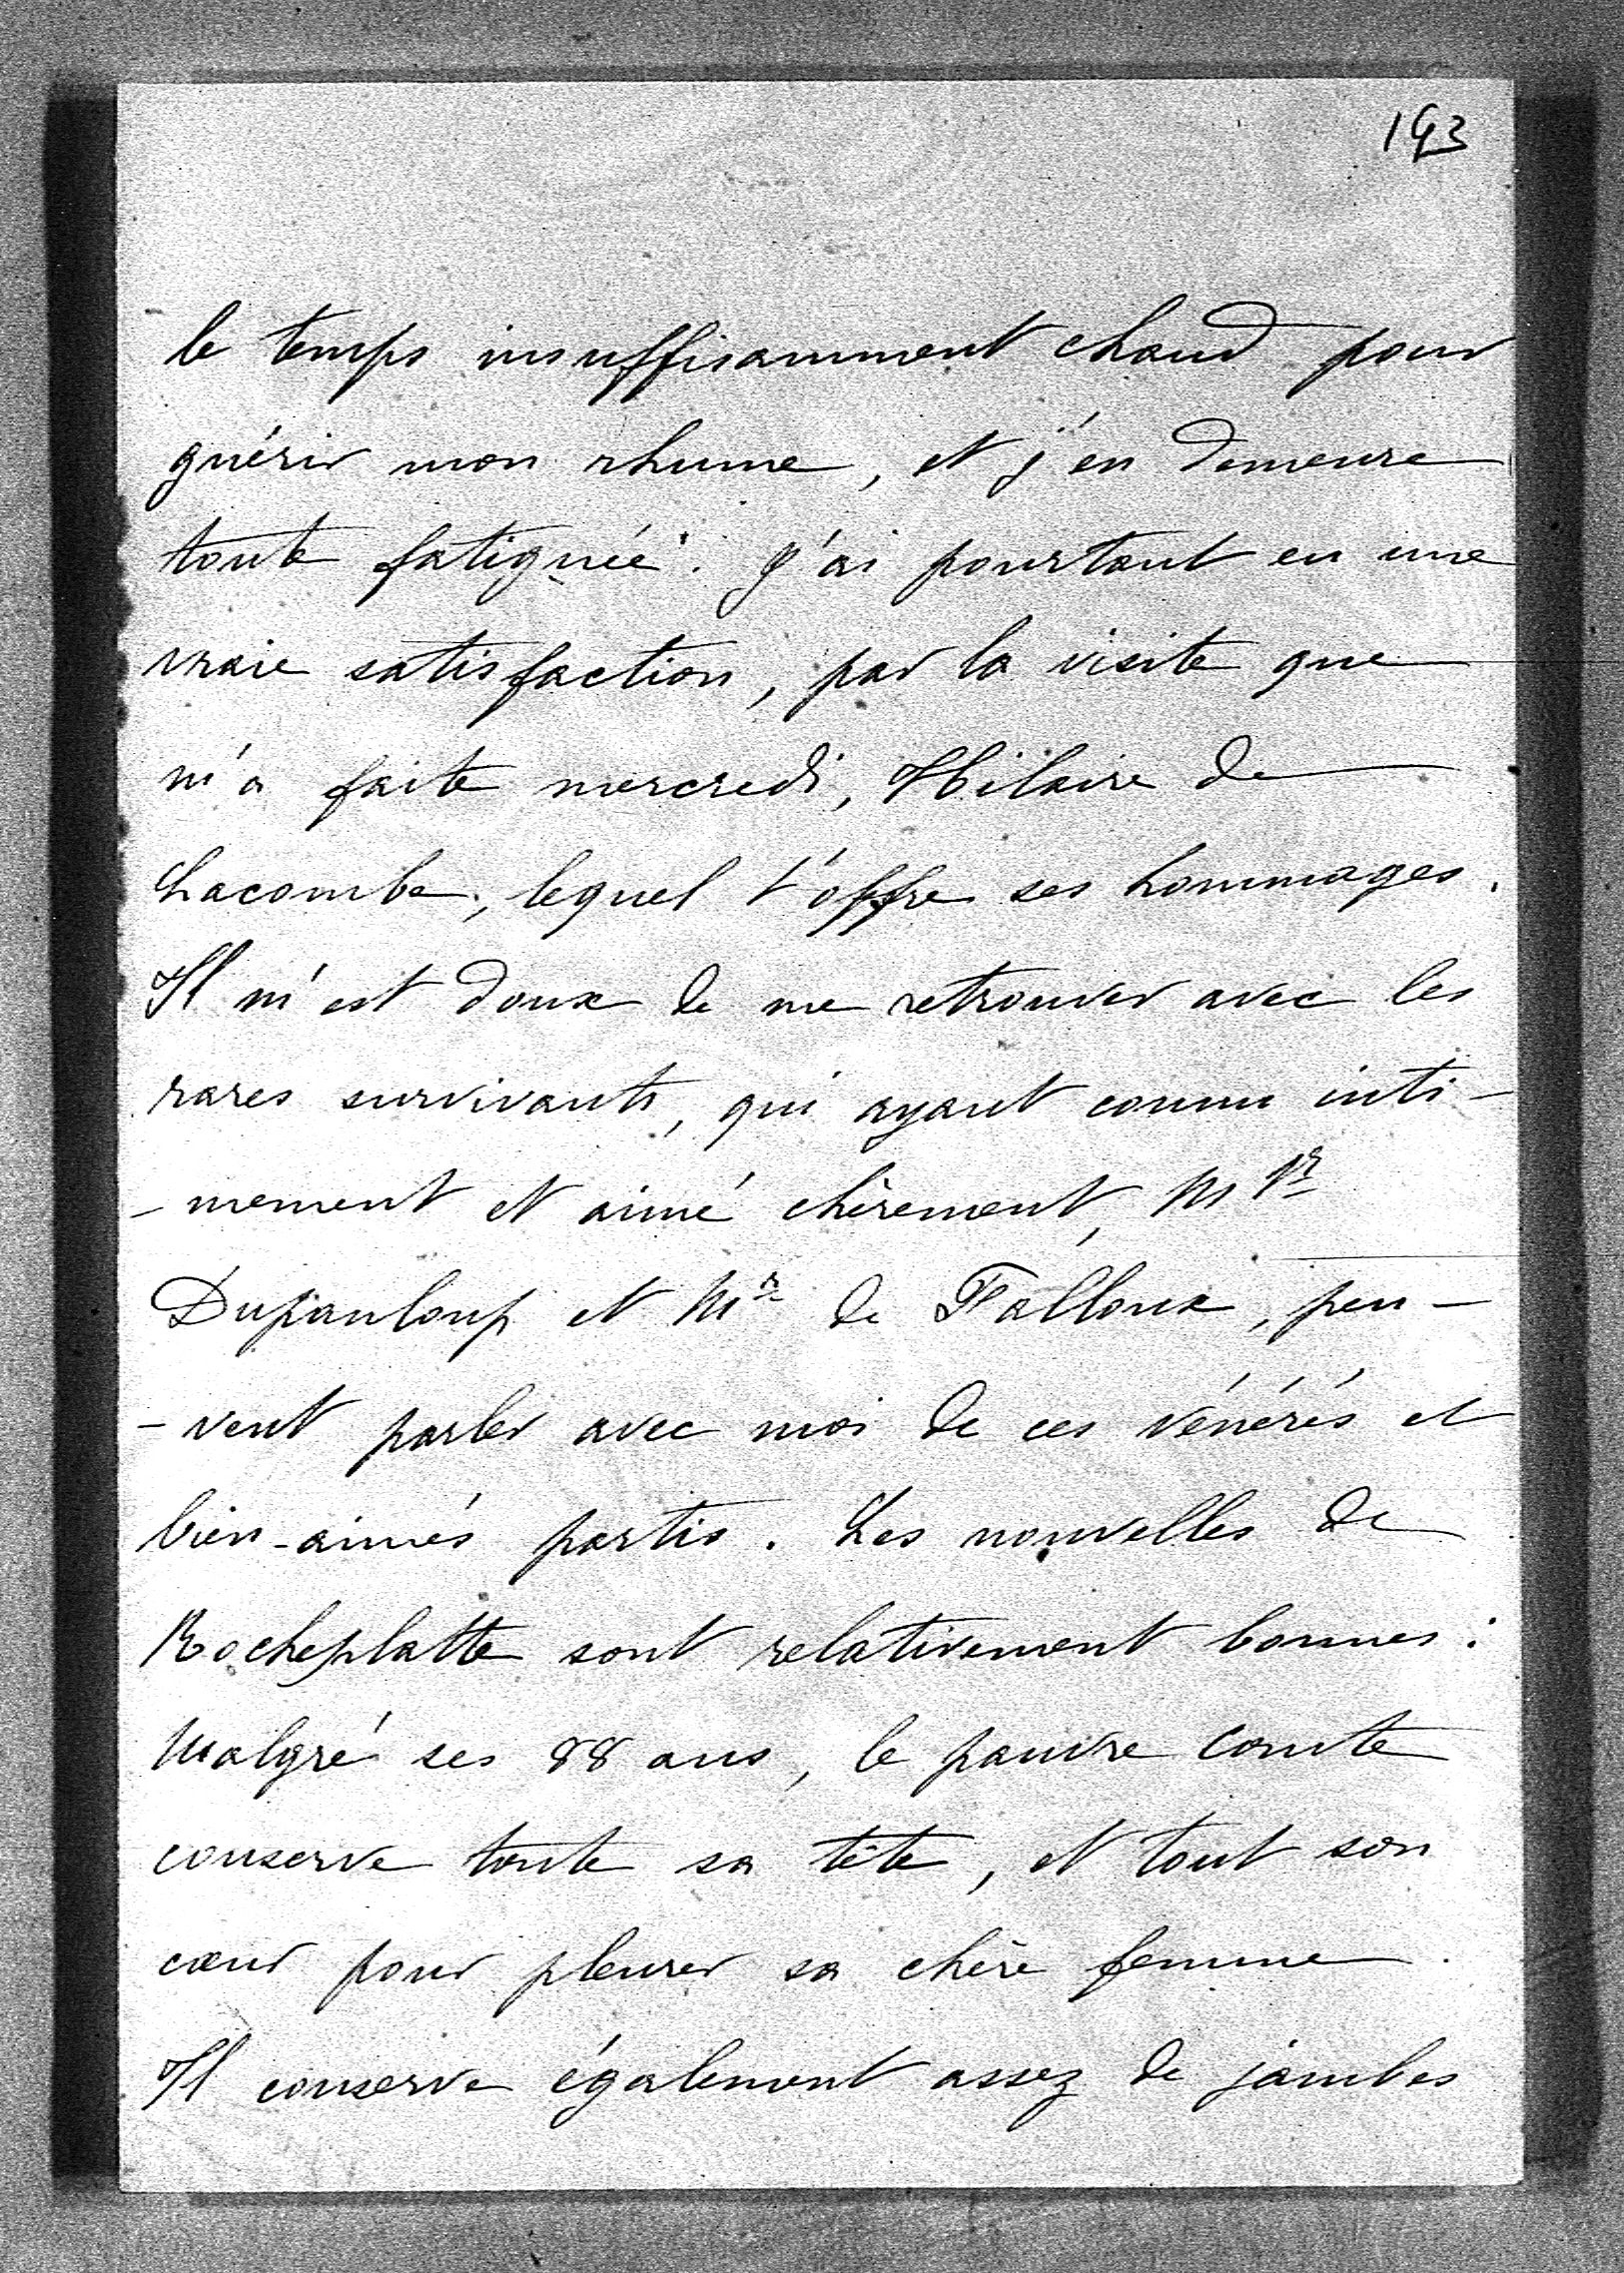 193
le temps insuffisamment chaud pour
guérir mon rhume, et j'en demeure
toute fatiguée. J'ai pourtant eu une
vraie satisfaction, par la visite que
m'a faite mercredi, Hilaire de
Lacombe, lequel t'offre ses hommages.
Il m'est doux de me retrouver avec les
rares survivants, qui ayant connu inti-
-mement et aimé chèrement, Mgr
Dupanloup et Mr de Falloux, peu-
-vent parler avec moi de ces vénérés et
bien-aimés partis. Les nouvelles de
Rocheplatte sont relativement bonnes :
Malgré ses 88 ans, le pauvre Comte
conserve toute sa tête, et tout son
cœur pour pleurer sa chère femme.
Il conserve également assez de jambes